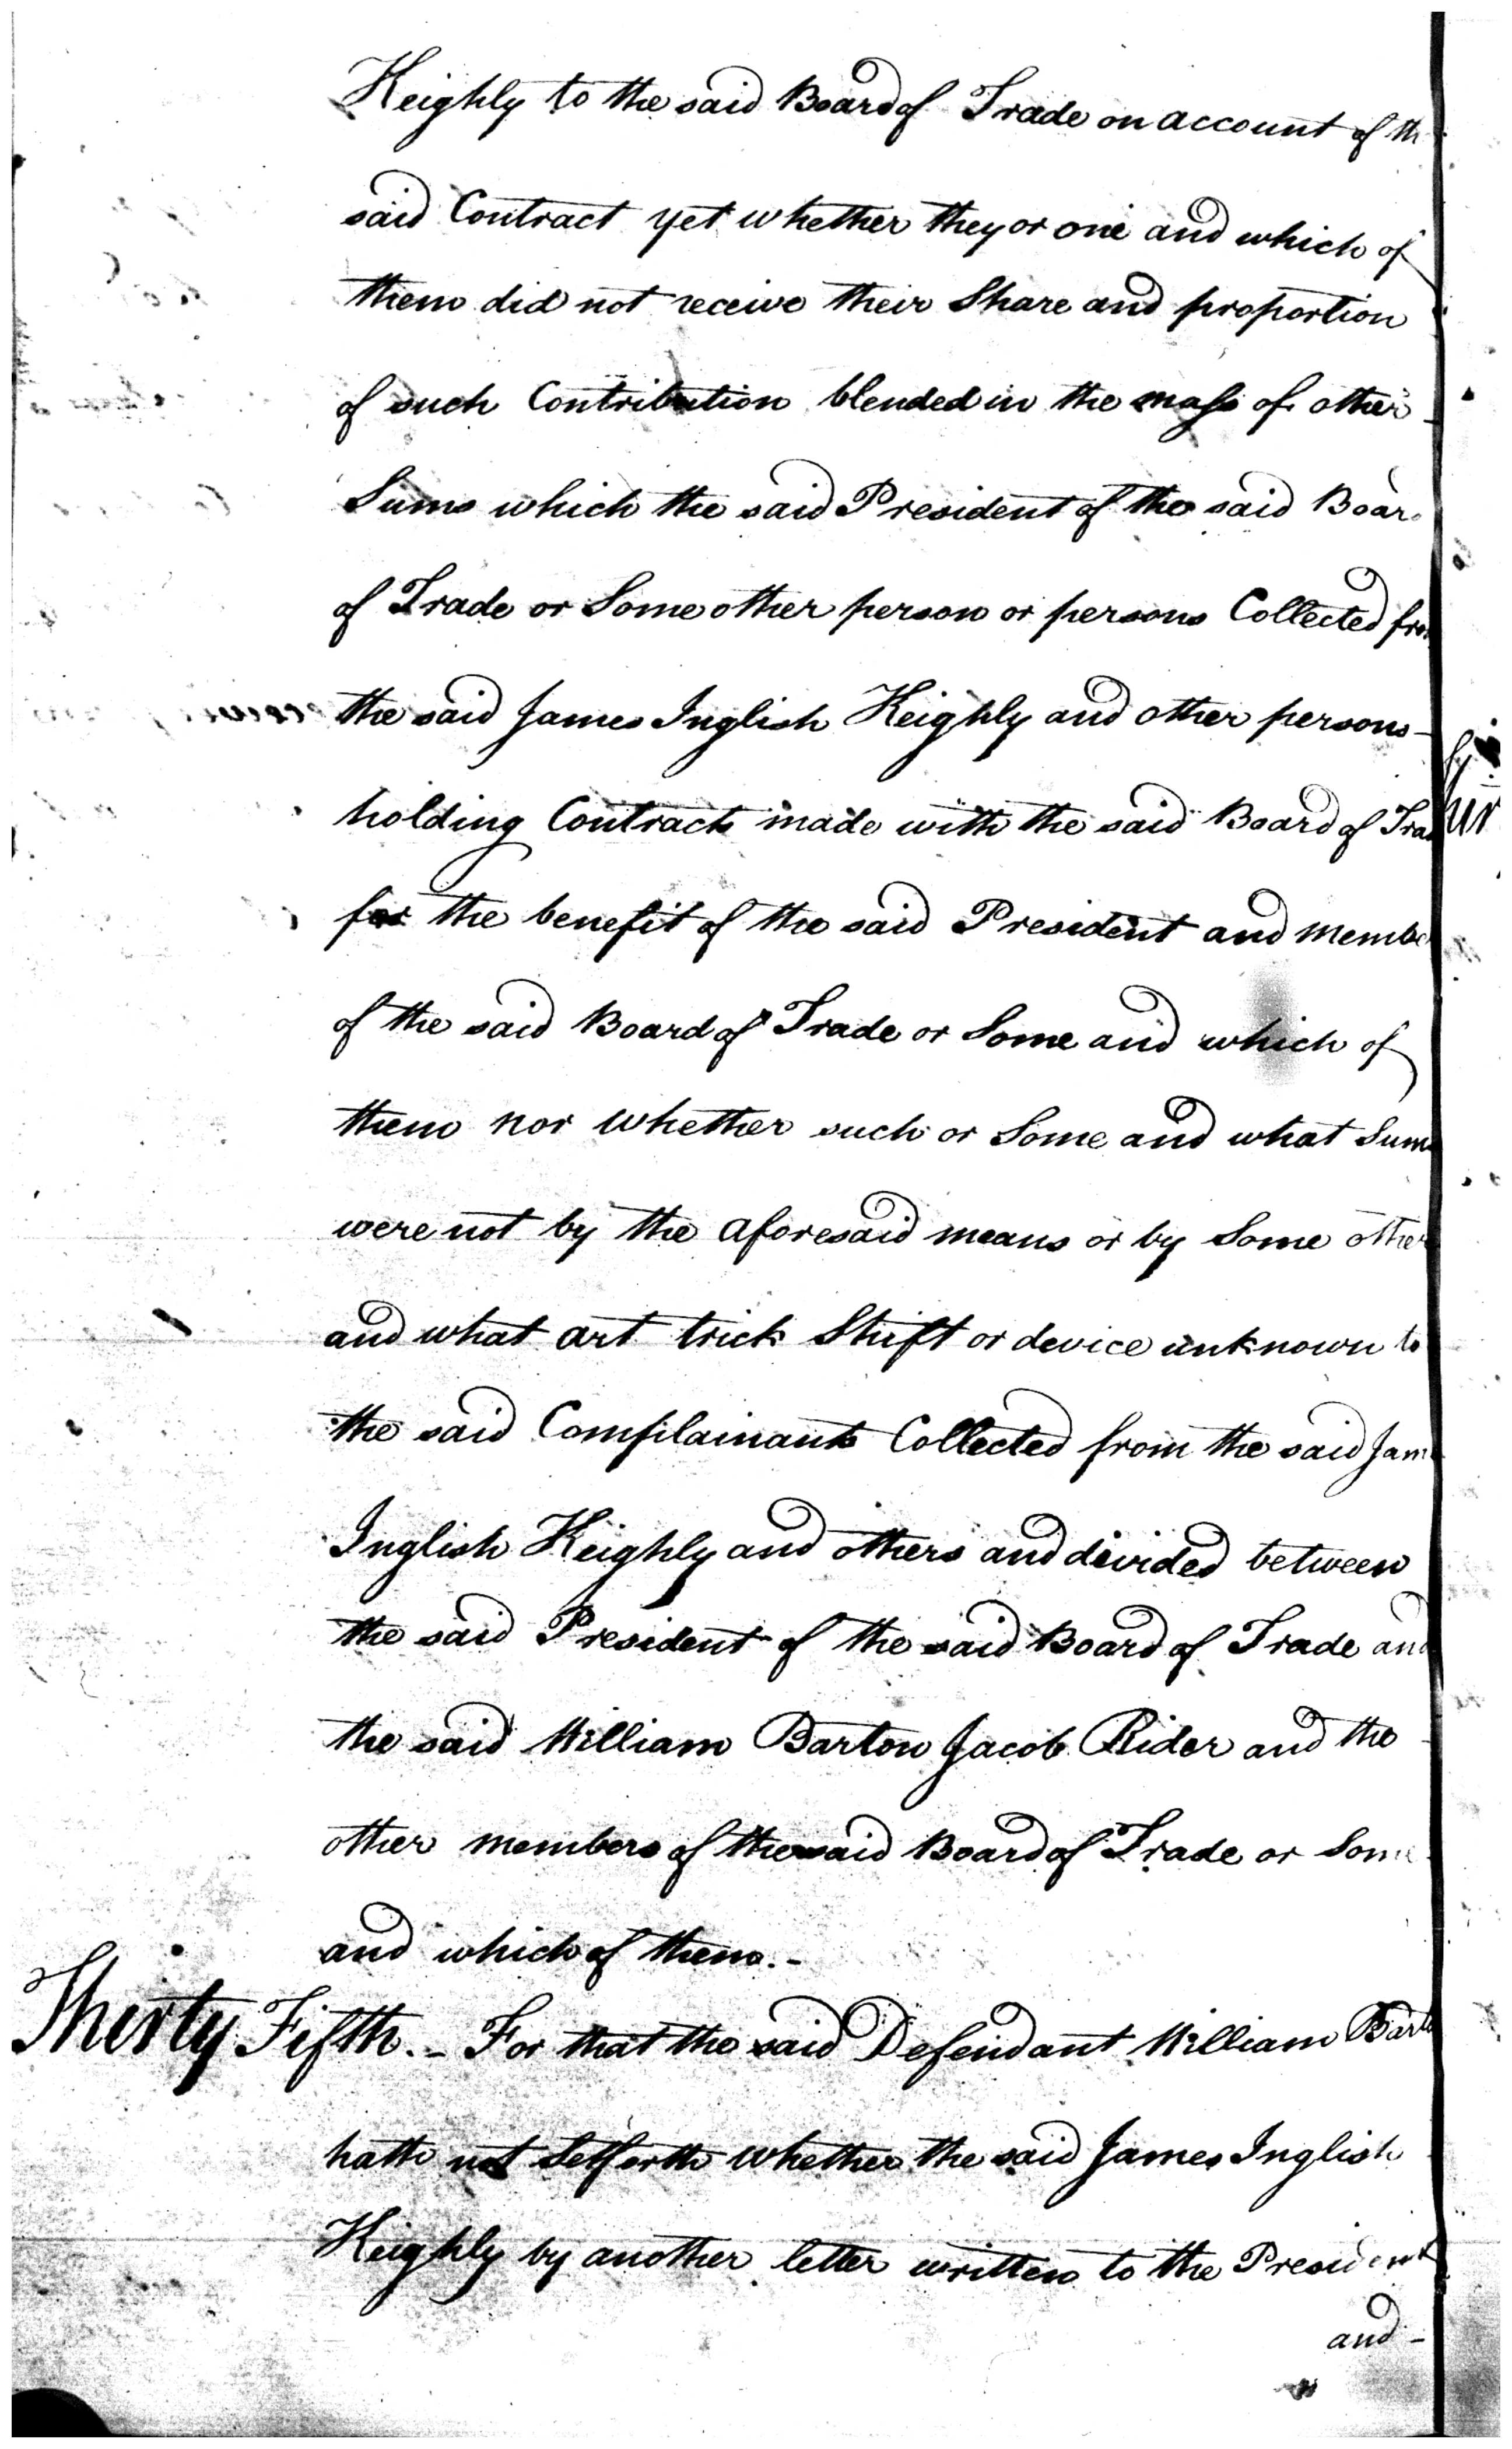 Keighly to the said Board of Trade on account of th
said Contract yet whether they or one and which of
them did not receive their Share and proportion
of such Contribution blended in the mass of other
Sums which the said President of the said Boar
of Trade or Some other person or persons Collected fro
the said James Inglish Keighly and other persons
holding Contracts made with the said Board of Tra
for the benefit of the said President and membe
of the said Board of Trade or Some and which of
them nor whether such or Some and what Sums
were not by the aforesaid means or by Some other
and what art trick Shift or device unknown to
the said Complainants Collected from the said Jam
Inglish Keighly and others and divided between
the said President of the said Board of Trade and
the said William Barton Jacob Rider and the
other members of the said Board of Trade or Some
and which of them. -
Thirty Fifth. - For that the said Defendant William Bart
hath not Setforth whether the said James Inglish
Keighly by another letter written to the President
and -